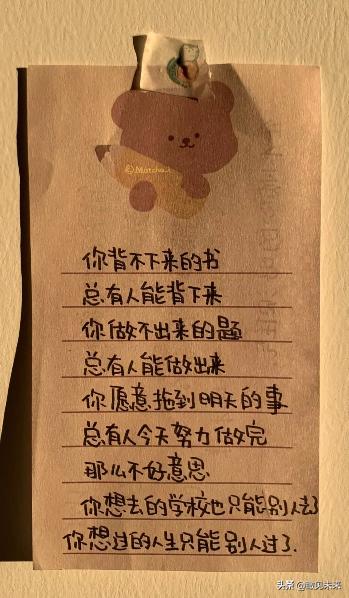 Matcha
你背不下来的书
总有人能背下来
你做不出来的题
总有人能做出来
你愿意拖到明天的事
总有人今天努力做完
那么不好意思
你想去的学校也只能别人去了
你想过的人生只能别人过了.
头条 @瞰见未来